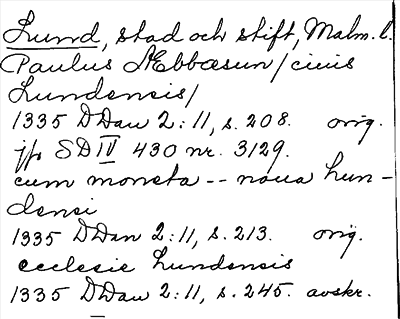 Lund, stad och stift, Malm. l.
Paulus Ebbæsun/ciuis
Lundensis/
1335 DDan 2:11, s. 208. orig.
jfr SD IV 430 nr. 3129.
cum moneta -- noua Lun-
densi
1335 DDan 2:11, s. 213. orig.
ecclesie Lundensis
1335 DDan 2:11, s. 245. avskr.